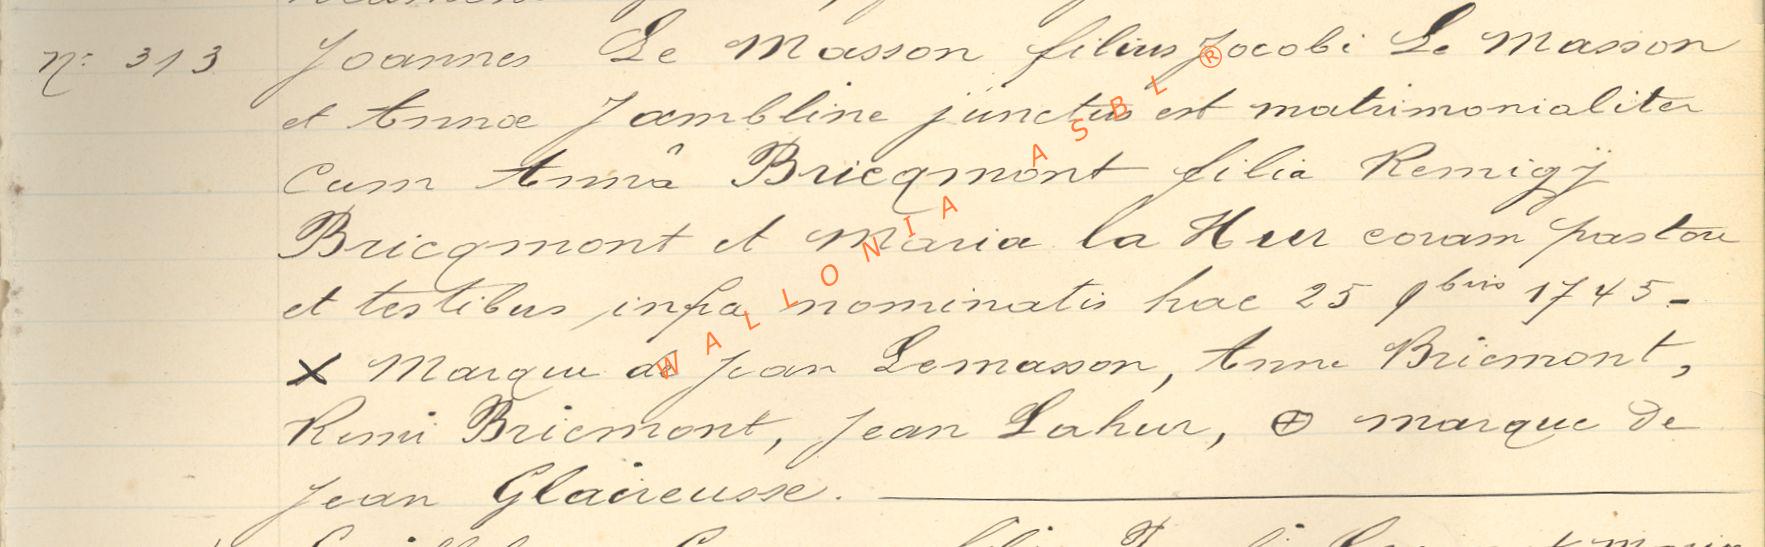 N: 313 Joannes Le Masson filius Jocobi Le Masson
et Annæ Jambline junctus est matrimonialiter
Cum Annâ Bricqmont filia Remigÿ
Bricqmont et Maria la Hur coram pastore
et testibus infra nominatis hac 25 9bris 1745-
X Marque de Jean Lemasson, Anne Bricmont,
Remi Bricmont, Jean Lahur, ⊕ marque De
Jean Glaireusse.
WALLONIA ASBL ®